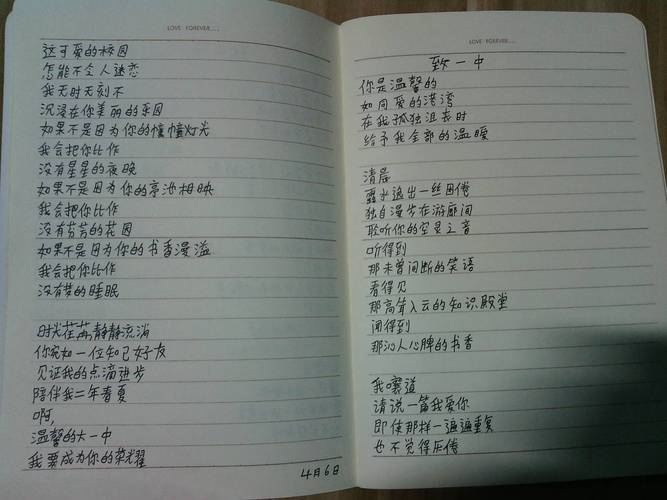 LOVE FOREVER....
这可爱的校园
怎能不令人迷恋
我无时无刻不
沉浸在你美丽的乐园
如果不是因为你的幢幢灯光
我会把你比作
没有星星的夜晚
如果不是因为你的亭池相映
我会把你比作
没有芬芳的花园
如果不是因为你的书香漫溢
我会把你比作
没有梦的睡眠
时光荏苒静静流淌
你宛如一位知己好友
见证我的点滴进步
陪伴我二年春夏
啊,
温馨的大一中
我要成为你的荣耀
4月6日
LOVE FOREVER....
致一中
你是温馨的
如同爱的港湾
在我孤独沮丧时
给予我全部的温暖
清晨
露水逸出一丝困倦
独自漫步在游廊间
聆听你的空灵之音
听得到
那未曾间断的笑语
看得见
那高耸入云的知识殿堂
闻得到
那沁人心脾的书香
我嚷道
请说一篇我爱你
即使那样一遍遍重复
也不觉得厌倦